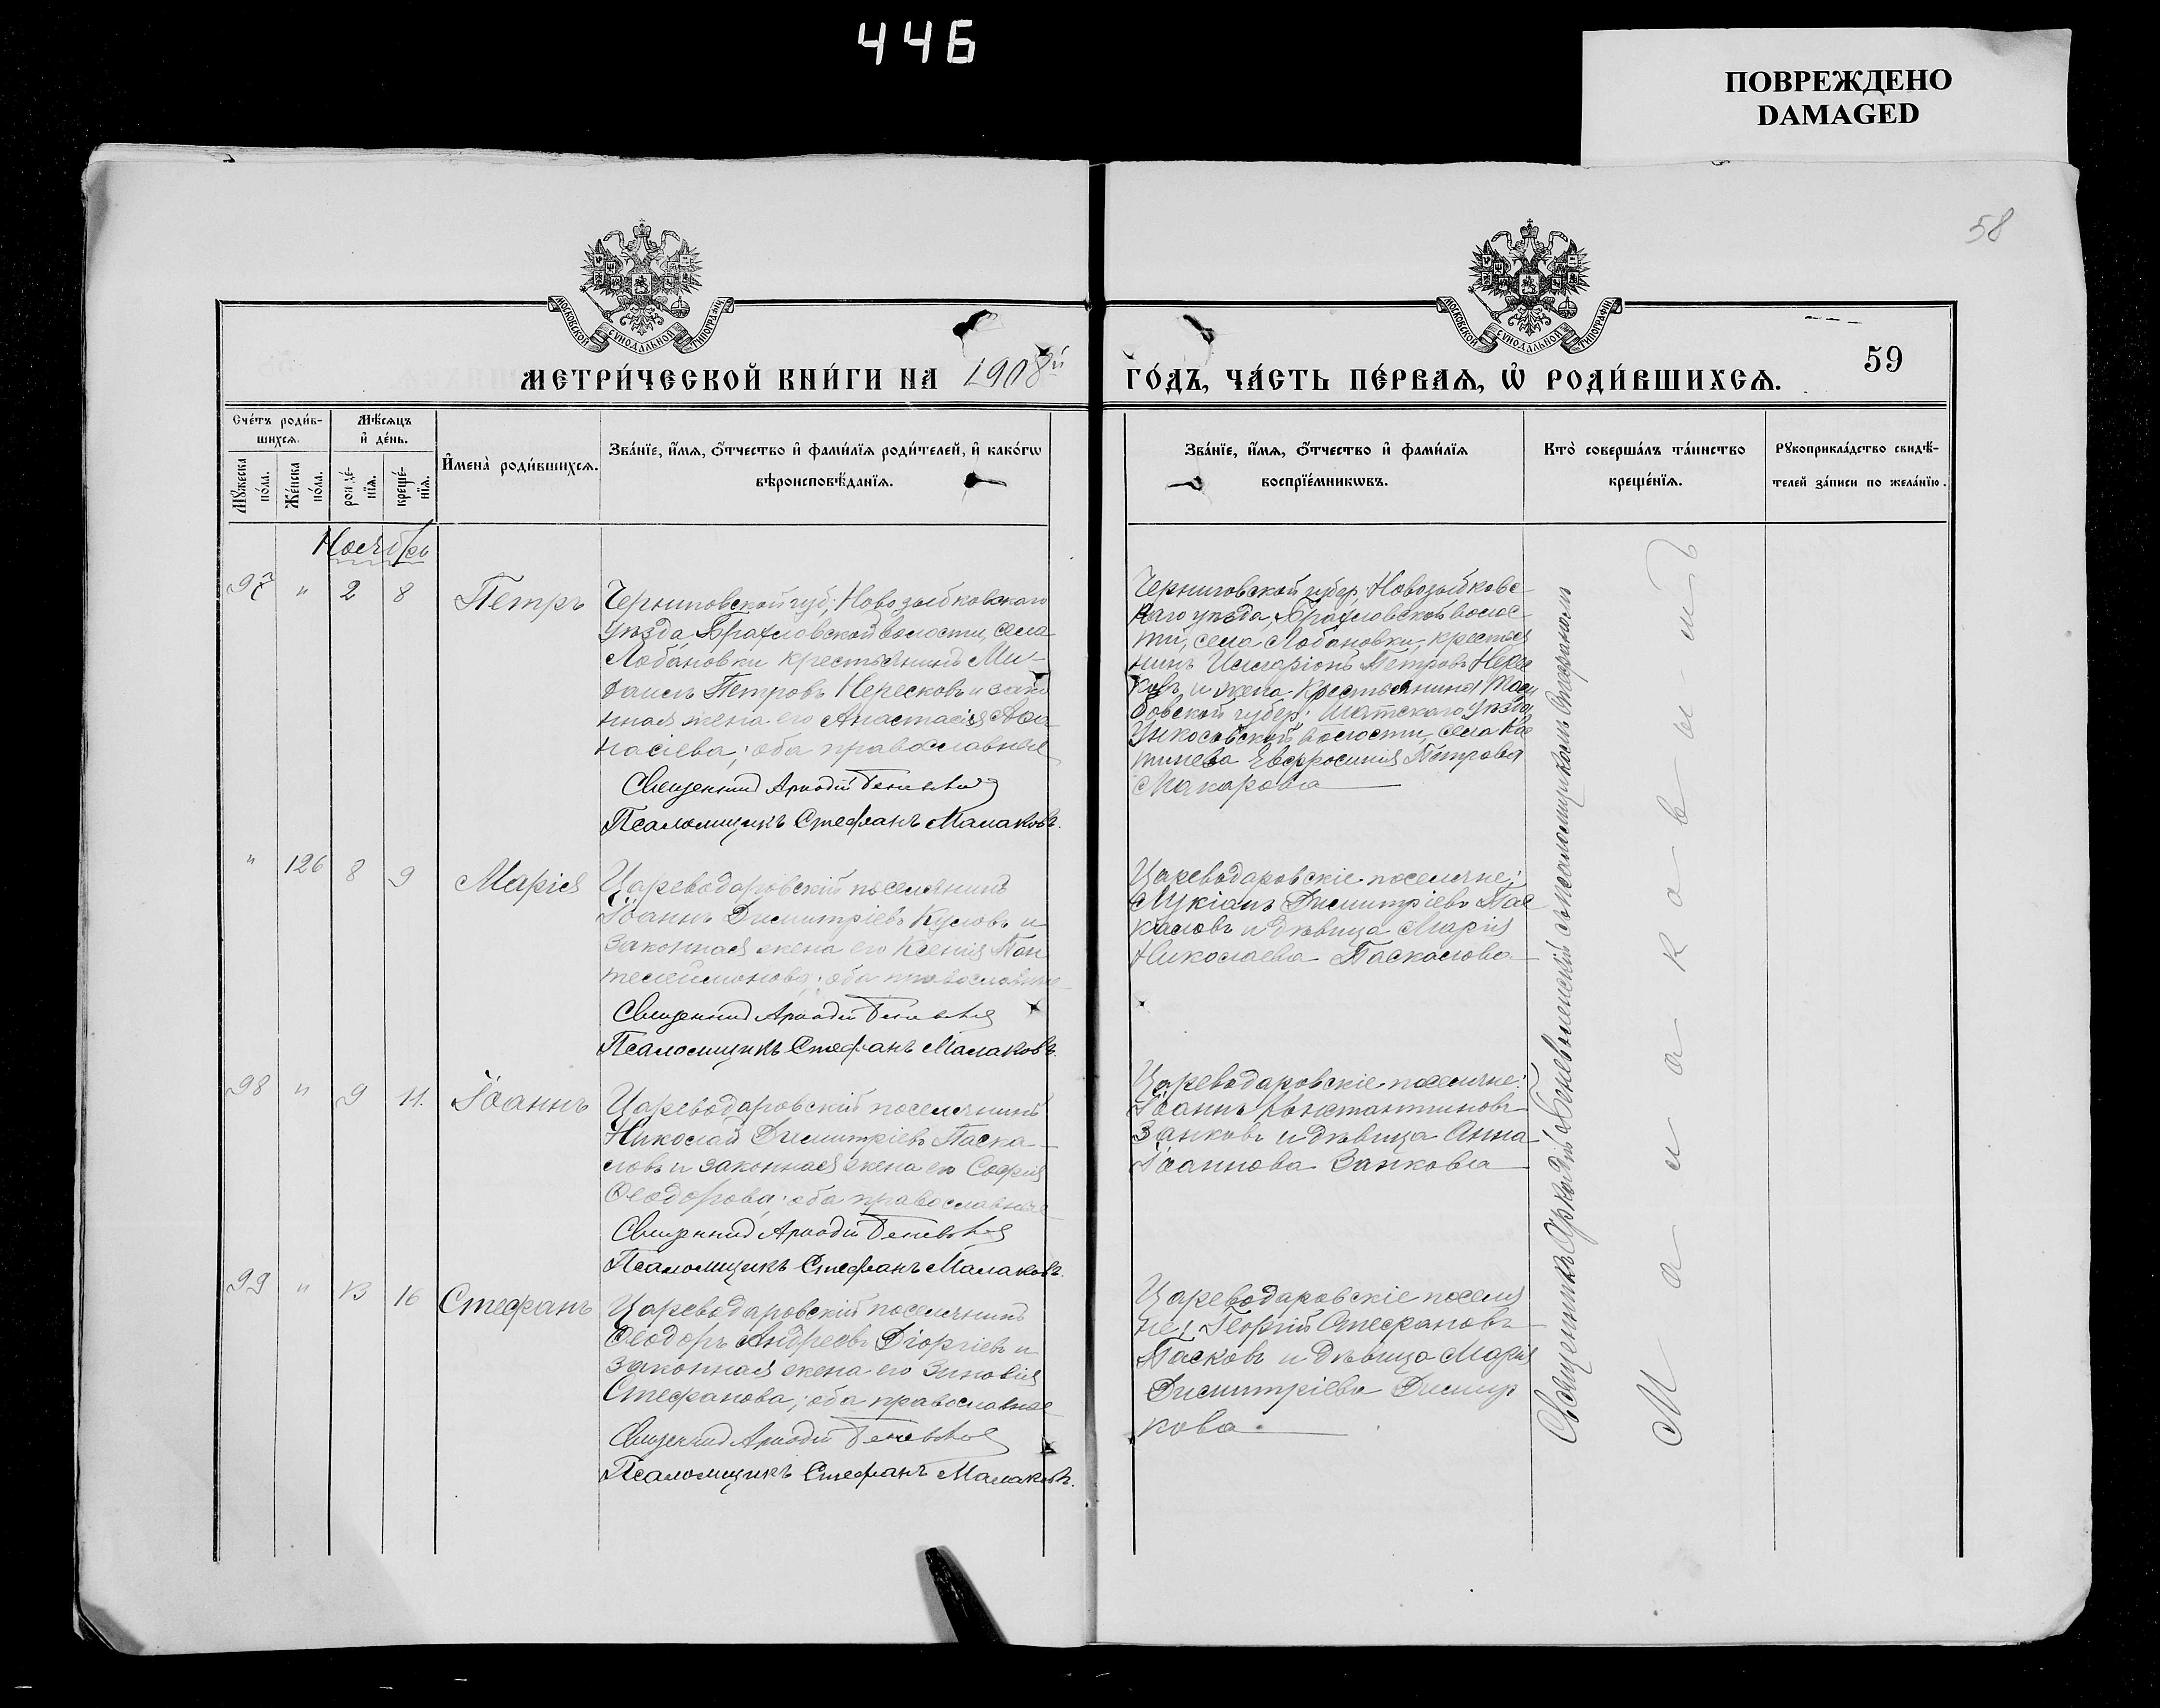 446
ПОВРЕЖДЕНО
DAMAGED
58
59
МОСКОВСКОЙ СУНОДАЛЬНОЙ ТИПОГРАФІИ
МОСКОВСКОЙ СУНОДАЛЬНОЙ ТИПОГРАФІИ
МЕТРИ́ЧЕСКОЙ КНИ́ГИ НА 1908й
ГО́ДЪ, ЧА́СТЬ ПЕ́РВАѦ, Ѡ҆ РОДИ́ВШИХСѦ.
Сче́тъ роди́в-
шихсѧ.
Мꙋжеска по́ла.
Же́нска по́ла.
Мѣ́сѧцъ
и҆ де́нь.
рожде́-
нїѧ.
креще́-
нїѧ.
И҆мена̀ роди́вшихсѧ.
Зва́нїе, и҆́мѧ, ѻ҆́тчество и҆ фами́лїѧ роди́телей, и҆ како́гѡ
вѣроисповѣ́данїѧ.
Зва́нїе, и҆́мѧ, ѻ҆́тчество и҆ фами́лїѧ
воспрїе́мникѡвъ.
Кто̀ соверша́лъ та́инство
креще́нїѧ.
Рꙋкоприкла́дство свидѣ́-
телей за́писи по жела́нїю.
Ноябрь
97 " 2 8 Петръ
Черниговской губ; Новозыбковскаго
Уѣзда Брахловской волости, села
Лобановки крестьянинъ Ми-
хаилъ Петровъ и зако
нная жена его Анастасія Аѳа
насіева; оба православные
Священникъ Аркадій
Псаломщикъ Стефанъ Малаковъ.
Черниговской губер; Новозыбковс-
каго уѣзда, Брахловской волос-
ти, села Лобановки, крестья
нинъ Иларіонъ Петровъ
ковъ и жена крестьянина Там
бовской губер; Шатскаго Уѣзда
волости, села
Евфросинія Петрова
Макарова
" 126 8 9 Марія
Цареводаровскій поселянинъ
Іоаннъ Димитріевъ и
законная жена его Ксенія Пан
телеимонова; оба православные
Священникъ Аркадій
Псаломщикъ Стефанъ Малаковъ.
Цареводаровскіе поселяне:
Лукіанъ Димитріевъ Пас
каловъ и дѣвица Марія
Николаева Паскалова
98 " 9 11. Іоаннъ
Цареводаровскій поселянинъ
Николай Димитріевъ Паска-
ловъ и законная жена его Софія
Ѳеодорова; оба православные
Священникъ Аркадій
Псаломщикъ Стефанъ Малаковъ.
Цареводаровскіе поселяне:
Іоаннъ Константиновъ
Занковъ и дѣвица Анна
Іоаннова Занкова
99 " 13 16 Стефанъ
Цареводаровскій поселянинъ
Ѳеодоръ Андреевъ Гіоргіевъ и
законная жена его Зиновія
Стефанова; оба православные
Священникъ Аркадій
Псаломщикъ Стефанъ Малаковъ.
Цареводаровскіе поселя
не: Георгій Стефановъ
Пасковъ и дѣвица Марія
Димитріева
кова
Священникъ Аркадій съ псаломщикомъ Стефаномъ
Малаковымъ